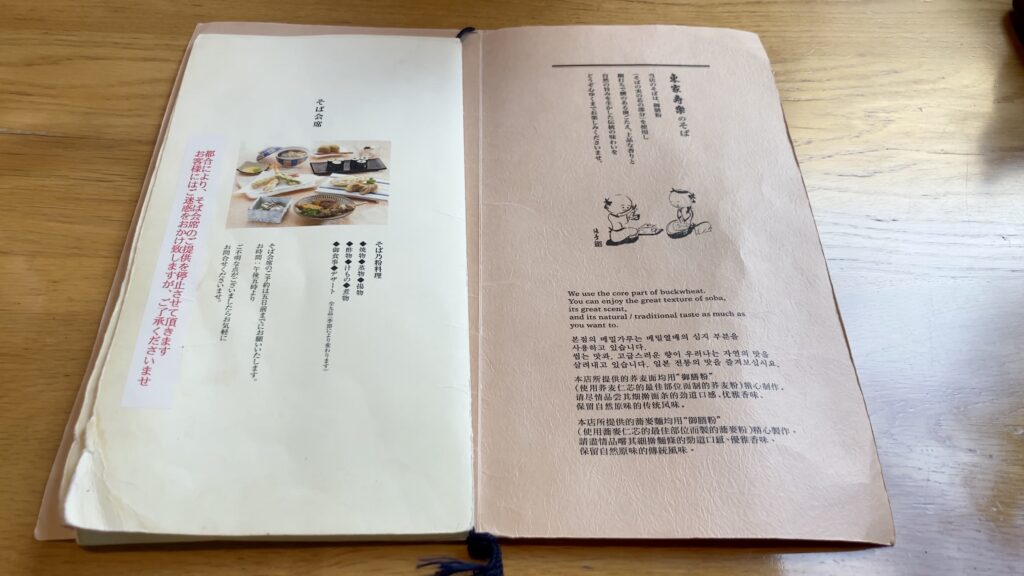 東家寿楽のそば
当店のそばは、御膳粉
(そばの実の芯の部分)を使用し
細打ちで腰のある歯ごたえ、上品な香りと
自然の旨みを生かした伝統の味わいを
どうぞ心ゆくまでお楽しみくださいませ。
We use the core part of buckwheat.
You can enjoy the great texture of soba,
its great scent,
and its natural / traditional taste as much as
you want to.
본점의 메밀가루는 메밀열매의 심지 부분을
사용하고 있습니다.
씹는 맛과, 고급스러운 향이 우러나는 자연의 맛을
살려내고 있습니다. 일본 전통의 맛을 즐겨보십시요.
本店所提供的荞麦面均用"御膳粉"
(使用荞麦仁芯的最佳部位而制的荞麦粉)精心制作。
请尽情品尝其细擀面条的劲道口感、优雅香味、
保留自然原味的传统风味。
本店所提供的蕎麥麵均用"御膳粉"
(使用蕎麥仁芯的最佳部位而製的蕎麥粉)精心製作。
請盡情品嚐其細擀麵條的勁道口感、優雅香味、
保留自然原味的傳統風味。
そば会席
そば乃粉料理
◆焼物◆蒸物◆揚物
◆酢物◆けもの◆煮物
◆御食事◆デザート
そば会席のご予約は五日前までにお願いいたします。
お時間:午後五時より
ご不明な点がございましたらお気軽に
お問合せくださいませ。
都合により、そば会席のご提供を停止させて頂きます
お客様にはご迷惑をおかけ致しますが、ご了承くださいませ